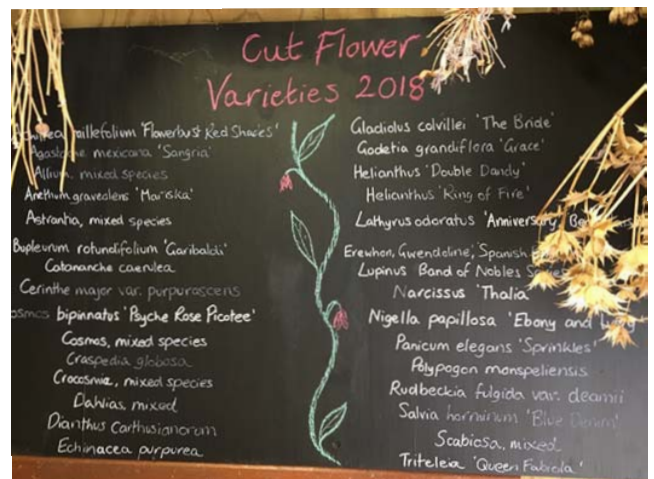 Cut Flower
Varieties 2018
millefolium 'Flowerburst Red Shades'
Agastache mexicana 'Sangria'
Allium, mixed species
Anethum graveolens 'Mariska'
Astrantia, mixed species
Bupleurum rotundifolium 'Garibaldi'
Catananche caerulea
Cerinthe major var. purpurascens
Cosmos bipinnatus 'Psyche Rose Picotee'
Cosmos, mixed species
Craspedia globosa
Crocosmia, mixed species
Dahlias, mixed
Dianthus carthusianorum
Echinacea purpurea
Gladiolus colvillei 'The Bride'
Godetia grandiflora 'Grace'
Helianthus 'Double Dandy'
Helianthus 'Ring of Fire'
Lathyrus odoratus 'Anniversary,
Erewhon, Gwendoline, Spanish
Lupinus Band of Nobles Series
Narcissus 'Thalia'
Nigella papillosa 'Ebony and
Panicum elegans 'Sprinkles'
Polypogon monspeliensis
Rudbeckia fulgida var. deamii
Salvia horminum 'Blue Denim'
Scabiosa, mixed
Triteleia 'Queen Fabiola'